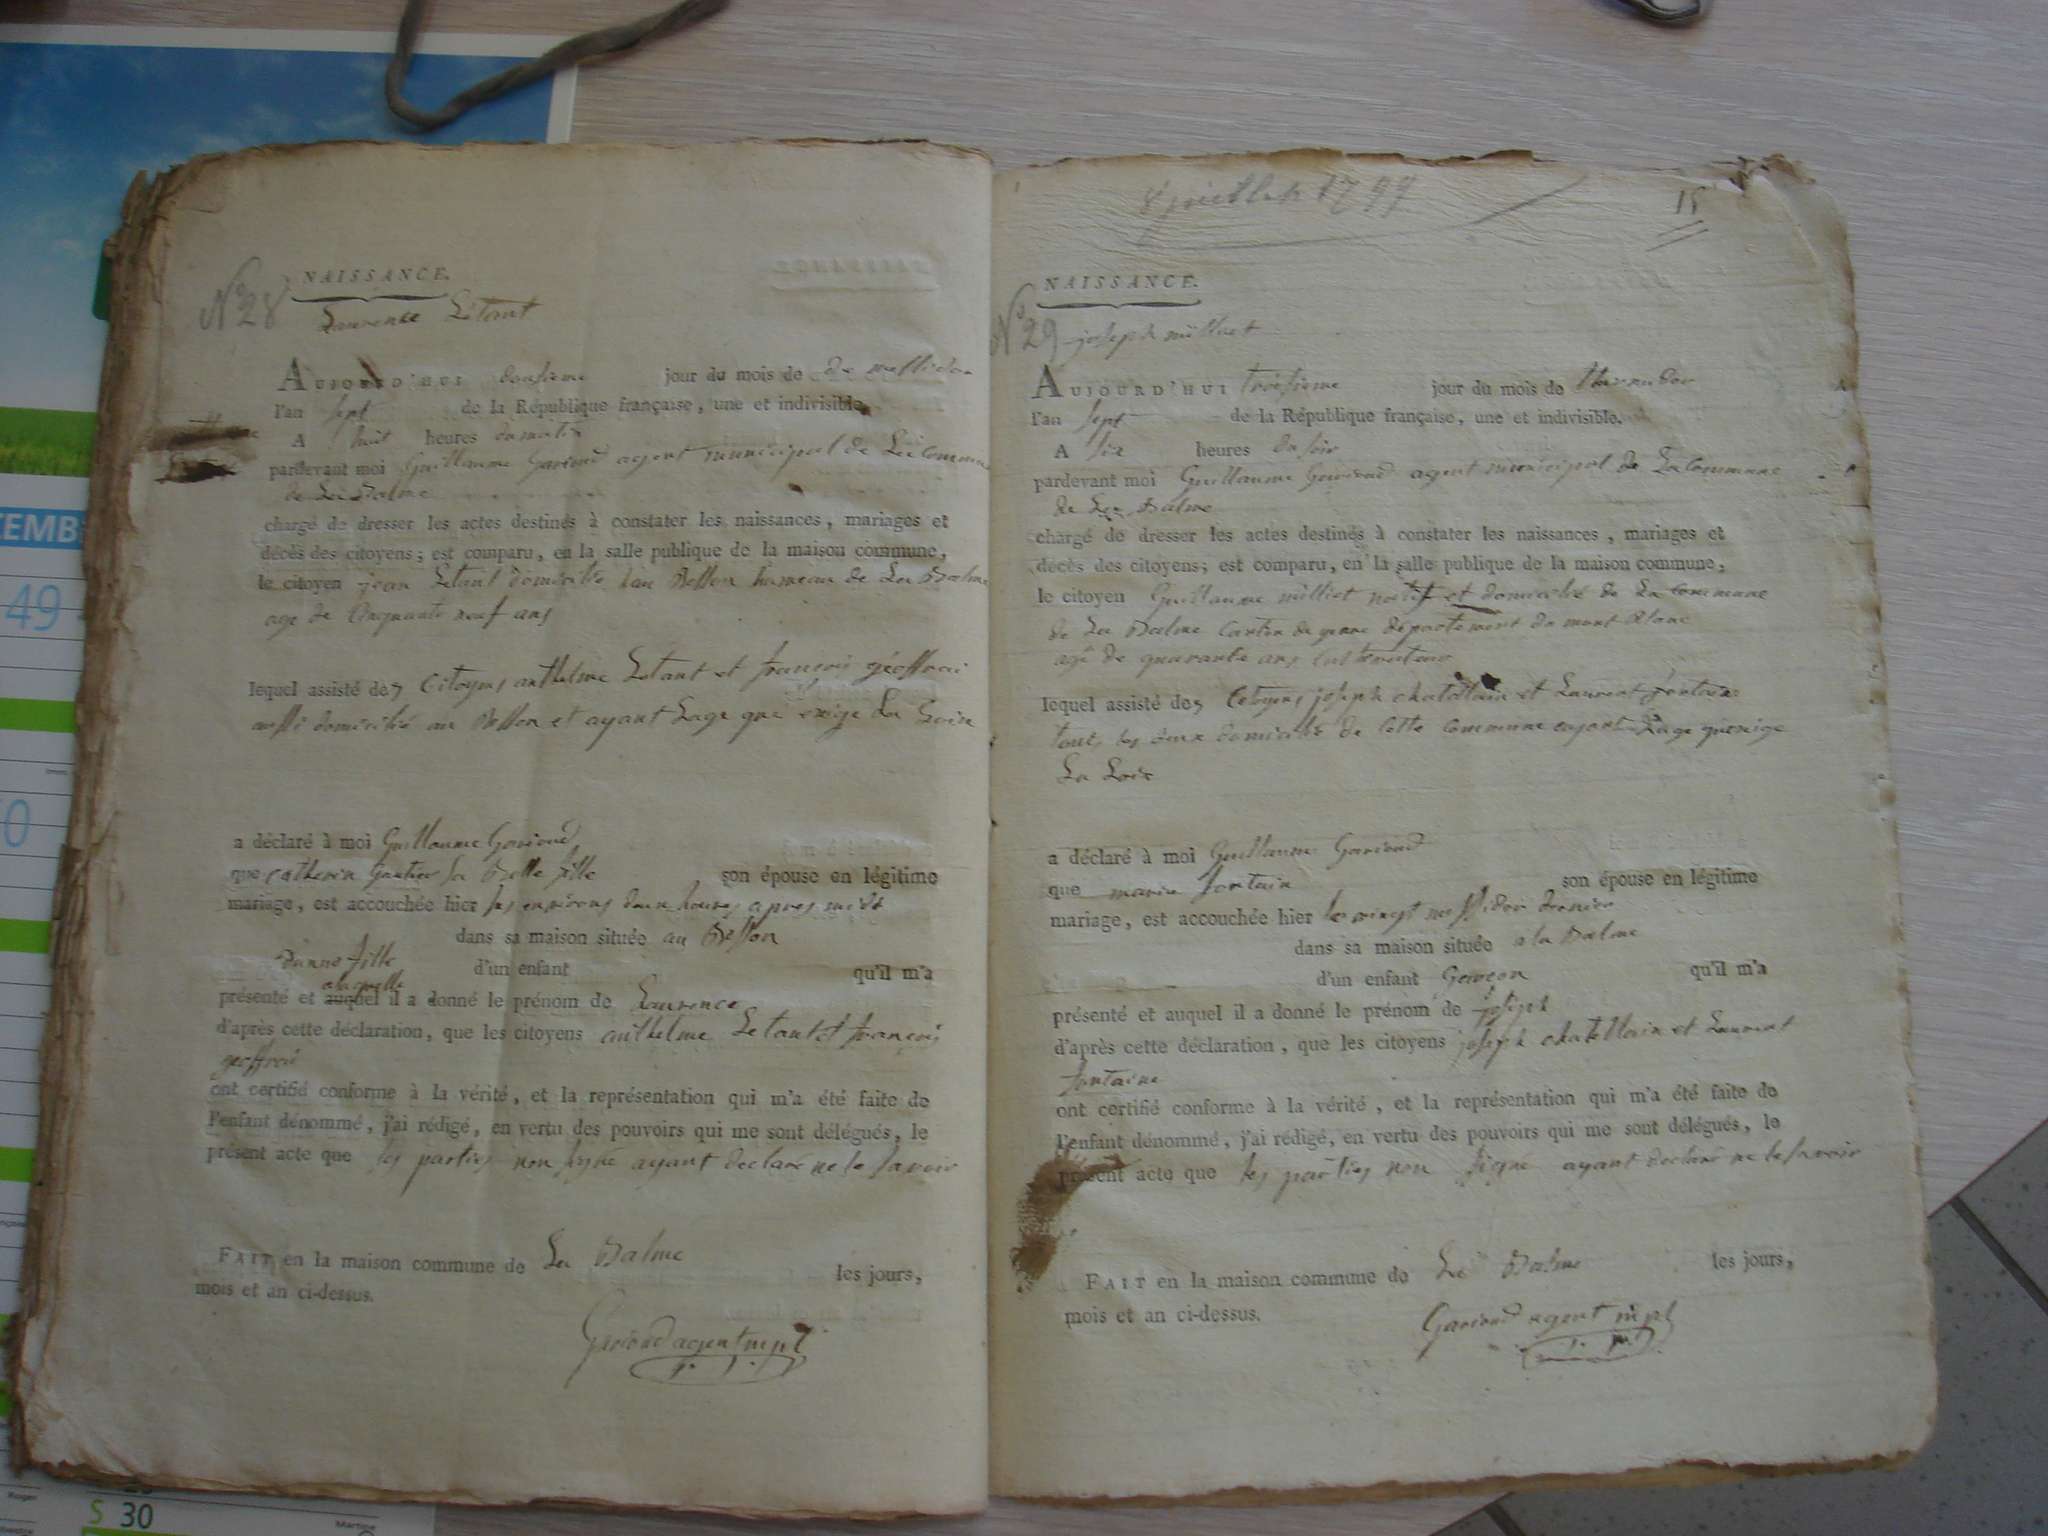 NAISSANCE.
N° 28
Laurence Létant
AUJOURD'HUI jour du mois de de messidor
l'an sept de la République française, une et indivisible.
A huit heures du matin
pardevant moi Guillaume Garioud agent municipal de La Commune
de La Balme
chargé de dresser les actes destinés à constater les naissances, mariages et
décès des citoyens; est comparu, en la salle publique de la maison commune,
le citoyen jean Letant domicilié au hameau de La Balme
age de Cinquante neuf ans
lequel assisté des Citoyens anthelme Letant et françois geoffrai
aussi domicilié au et ayant Lage que exige La Loix
a déclaré à moi Guillaume Garioud
que catherin Gautier sa Belle fille son épouse en légitime
mariage, est accouchée hier les environs deux heures apres midi
dans sa maison située au
d'une fille d'un enfant qu'il m'a
alaquelle
présenté et auquel il a donné le prénom de Laurence
d'après cette déclaration, que les citoyens anthelme Letant et françois
geoffrai
ont certifié conforme à la vérité, et la représentation qui m'a été faite de
l'enfant dénommé, j'ai rédigé, en vertu des pouvoirs qui me sont délégués, le
présent acte que les parties non signé ayant declaré ne le savoir
FAIT en la maison commune de La Balme les jours,
mois et an ci-dessus.
Garioud agent mpl
8 juillet 1799
15
NAISSANCE.
N° 29 joseph milliet
AUJOURD'HUI troisieme jour du mois de thermidor
l'an sept de la République française, une et indivisible.
A six heures du soir
pardevant moi Guillaume Garioud agent municipal de La Commune
de La Balme
chargé de dresser les actes destinés à constater les naissances, mariages et
décès des citoyens; est comparu, en la salle publique de la maison commune,
le citoyen Guillaume milliet natif et domicilié de La Commune
de La Balme Canton de yenne département du mont Blanc
agé de quarante ans Cultivateur
lequel assisté des Citoyens joseph chatellain et Laurent fontaine
tous les deux domicilié de Cette Commune ayant Lage quexige
La Loix
a déclaré à moi Guillaume Garioud
que marie fontain son épouse en légitime
mariage, est accouchée hier le vingt messidor dernier
dans sa maison située a la Balme
d'un enfant Garçon qu'il m'a
présenté et auquel il a donné le prénom de joseph
d'après cette déclaration, que les citoyens joseph chatellain et Laurent
fontaine
ont certifié conforme à la vérité, et la représentation qui m'a été faite de
l'enfant dénommé, j'ai rédigé, en vertu des pouvoirs qui me sont délégués, le
présent acte que les parties non signé ayant declaré ne le savoir
FAIT en la maison commune de La Balme les jours,
mois et an ci-dessus.
Garioud agent mpl
49
S 30